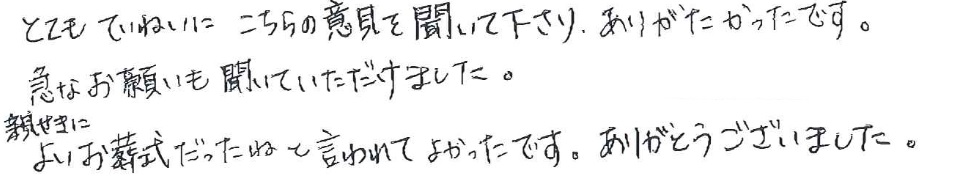 とてもていねいに こちらの意見を聞いて下さり、ありがたかったです。
急なお願いも聞いていただけました。
親せきに
よいお葬式だったねと言われてよかったです。ありがとうございました。